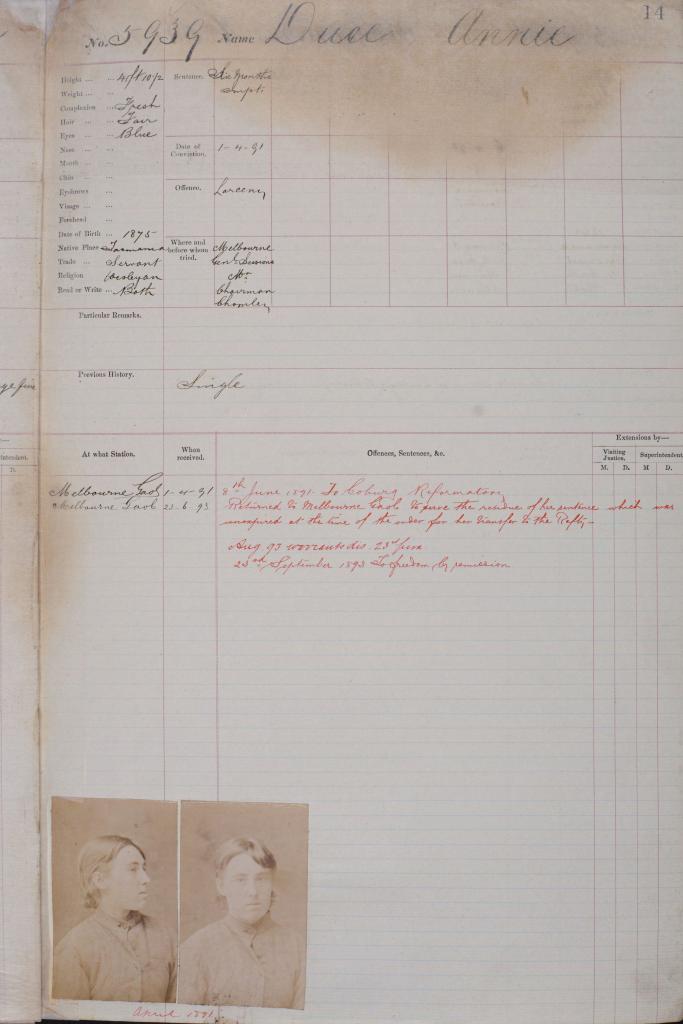 14
No. 5939 Name Duce Annie
Height ... 4ft 10½ Sentence. Six Months
Weight ... Impt.
Complexion Fresh
Hair Fair
Eyes Blue
Nose ... Date of Conviction. 1-4-91
Mouth ...
Chin ...
Eyebrows Offence. Larceny
Visage ...
Forehead
Date of Birth ... 1875
Native Place Tasmania Where and before whom tried. Melbourne
Trade Servant Genl. Sessions
Religion Wesleyan Mr.
Read or Write Both Chairman
Chomley
Particular Remarks.
Previous History. Single
Extensions by—
At what Station. When received. Offences, Sentences, &c. Visiting Justice. Superintendent.
M. D. M D.
Melbourne Gaol 1-4-91 8th June 1891 To Coburg Reformatory
Melbourne Gaol 23-6-93 Returned to Melbourne Gaol to serve the residue of her sentence which was
unexpired at the time of the order for her transfer to the Refty—
Aug 93 warrants dis. 23rd
23rd September 1893 To freedom by remission
April 1891